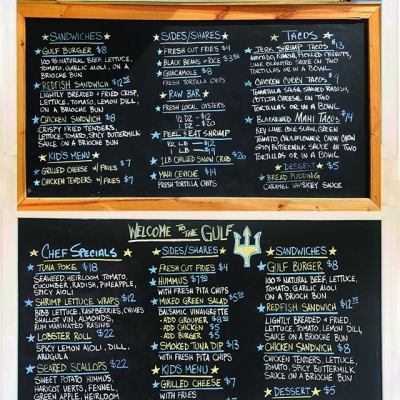 SANDWICHES
GULF BURGER $8
100% NATURAL BEEF, LETTUCE,
TOMATO, GARLIC AIOLI, ON A
BRIOCHE BUN
REDFISH SANDWICH $12
LIGHTLY BREADED & FRIED CRISP,
LETTUCE, TOMATO, LEMON DILL,
ON A BRIOCHE BUN
CHICKEN SANDWICH $8
CRISPY FRIED TENDERS,
LETTUCE, TOMATO, SPICY BUTTERMILK
SAUCE ON A BRIOCHE BUN
KID'S MENU
GRILLED CHEESE W/ FRIES $7
CHICKEN TENDERS W/ FRIES $7
SIDES/SHARES
FRESH CUT FRIES $4
BLACK BEANS + RICE
GUACAMOLE $8
FRESH TORTILLA CHIPS
RAW BAR
FRESH LOCAL OYSTERS
1/2 DZ $12
1 DZ $20
PEEL & EAT SHRIMP
1/2 LB $12
1 LB $19
1LB CHILLED SNOW CRAB $26
MAHI CEVICHE $14
FRESH TORTILLA CHIPS
TACOS
JERK SHRIMP TACOS $13
AVOCADO, KIMCHI, PICKLED CARROTS,
LIME CILANTRO SAUCE ON TWO
TORTILLAS OR IN A BOWL
CHICKEN CURRY TACOS $9
SALSA, SHAVED RADISH,
COTIJA CHEESE ON TWO
TORTILLAS OR IN A BOWL
BLACKENED MAHI TACOS $14
KEY LIME COLE SLAW, GREEN
TOMATO, CAULIFLOWER CHOW CHOW
SPICY BUTTERMILK SAUCE ON TWO
TORTILLAS OR IN A BOWL
DESSERT $5
BREAD PUDDING
CARAMEL WHISKEY SAUCE
WELCOME TO THE GULF
CHEF SPECIALS
TUNA POKE $18
SEAWEED, HEIRLOOM TOMATO,
CUCUMBER, RADISH, PINEAPPLE,
SPICY AIOLI
SHRIMP LETTUCE WRAPS $12
BIBB LETTUCE, RASPBERRIES, CHIVES
SHALLOT VIN, ALMONDS,
RUM MARINATED RAISINS
LOBSTER ROLL $22
SPICY LEMON AIOLI, DILL,
ARUGULA
SEARED SCALLOPS $22
SWEET POTATO HUMMUS,
HARICOT VERTS, FENNEL,
GREEN APPLE, HEIRLOOM
SIDES/SHARES
FRESH CUT FRIES $4
HUMMUS
WITH FRESH PITA CHIPS
MIXED GREEN SALAD
BALSAMIC VINAIGRETTE
- ADD GROUPER
- ADD CHICKEN $5
- ADD BURGER $5
SMOKED TUNA DIP $13
WITH FRESH PITA CHIPS
KIDS MENU
GRILLED CHEESE $7
WITH FRIES
SANDWICHES
GULF BURGER $8
100% NATURAL BEEF, LETTUCE,
TOMATO, GARLIC AIOLI
ON A BRIOCH BUN
REDFISH SANDWICH $12
LIGHTLY BREADED + FRIED,
LETTUCE, TOMATO, LEMON DILL
SAUCE ON A BRIOCHE BUN
CHICKEN SANDWICH $8
CHICKEN TENDERS, LETTUCE,
TOMATO, SPICY BUTTERMILK
SAUCE ON A BRIOCHE BUN
DESSERT $5